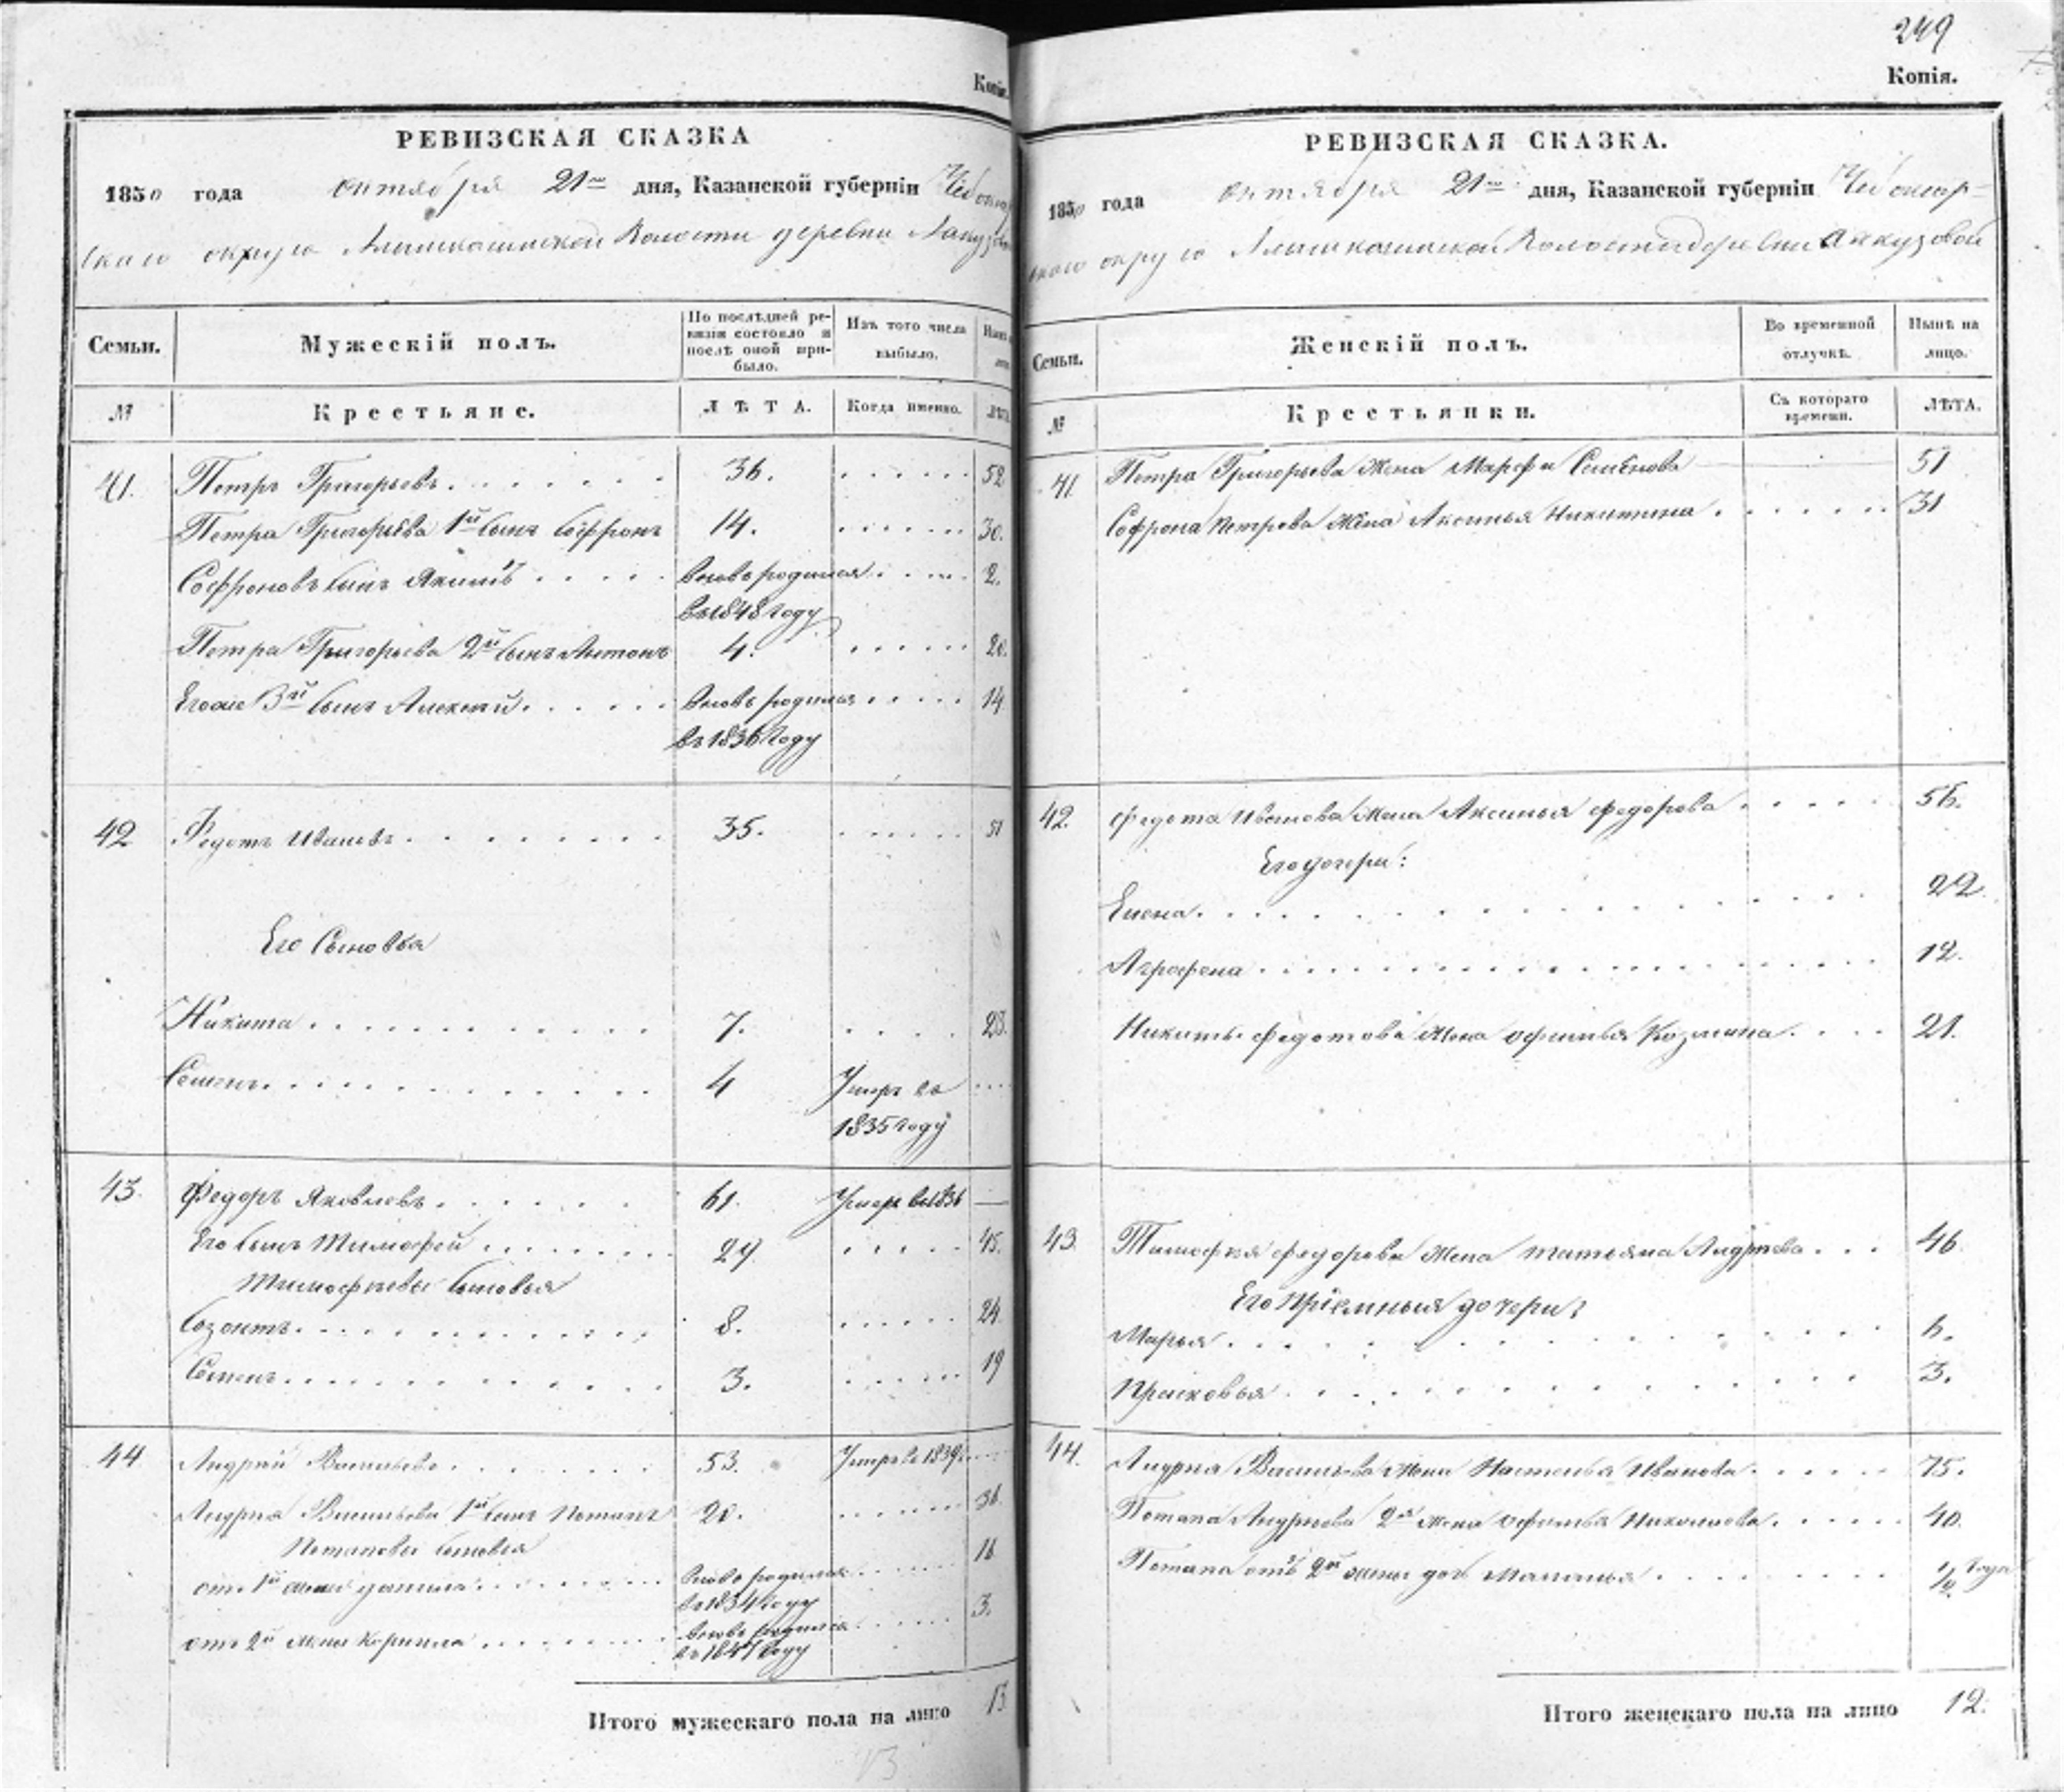 Копія.
РЕВИЗСКАЯ СКАЗКА
1850 года октября 21го дня, Казанской губерніи Чебоксар
скаго округа Алымкасинской Волости деревни
Семьи.
Мужескій полъ.
По послѣдней ре-
визіи состояло и
послѣ оной при-
было.
Изъ того числа
выбыло.
№
Крестьяне.
ЛѢТА.
Когда именно.
41. Петръ Григорьевъ 36. 52
Петра Григорьева 1й сынъ Софронъ 14. 30.
Софроновъ сынъ Якимъ вновь родился 2.
въ 1848 году
Петра Григорьева 2й сынъ Антонъ 4. 20.
Его же 3й сынъ Алексѣй вновь родился 14
въ 1836 году
42 Федотъ Ивановъ 35. 51
Его Сыновья
Никита 7. 23.
Семенъ 4 Умеръ въ
1835 году
43. Федоръ Яковлевъ 61. Умеръ въ 1836 —
Его сынъ Тимофей 29 45.
Тимофеевы сыновья
Созонтъ 8. 24
Семенъ 3. 19
44 Андрей Васильевъ 53. Умеръ въ 1839
Андрея Васильева 1й сынъ Потапъ 20. 36
Потаповы сыновья 16
отъ 1й жены Данила вновь родился
въ 1834 году 3.
отъ 2й жены Кирилла вновь родился
въ 1847 году
Итого мужескаго пола на лицо 13
13
249
Копія.
РЕВИЗСКАЯ СКАЗКА.
1850 года октября 21го дня, Казанской губерніи Чебоксар-
скаго округа Алымкасинской Волости деревни Аккузовой
Семьи.
Женскій полъ.
Во временной
отлучкѣ.
Нынѣ на
лицо.
№
Крестьянки.
Съ котораго
времени.
ЛѢТА.
41 Петра Григорьева Жена Марфа Семенова 51
Софрона Петрова Жена Аксинья Никитина 31
42. Федота Иванова Жена Аксинья Федорова 56.
Его дочери:
Елена 22.
Аграфена 12.
Никиты Федотова Жена Офимья Козмина 21.
43 Тимофея Федорова Жена Татьяна Андреева 46
Его Пріемныя дочери:
Марья 6.
Прасковья 3.
44. Андрея Васильева Жена Настасья Иванова 75.
Потапа Андреева 2я Жена Офимья Николаева 40.
Потапа отъ 2й жены дочь Маланья 1/2 года
Итого женскаго пола на лицо 12.